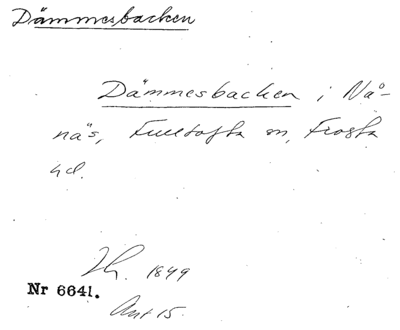 Dämmesbacken
Dämmesbacken i Nå-
näs, Fulltofta sn, Frosta
hd.
Lh. 1849
Nr 6641.
Ant 15.